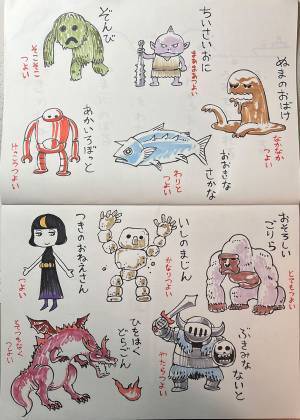 ぞんび
そこそこ
つよい
ちいさいおに
まあまあつよい
ぬまのおばけ
なかなか
つよい
あかいろぼっと
けっこうつよい
おおきな
さかな
わりと
つよい
つきのおねえさん
つよい
いしのまじん
かなりつよい
おそろしい
ごりら
とてもつよい
ひをはく
どらごん
とてつもなく
つよい
ぶきみな
ないと
やたらつよい